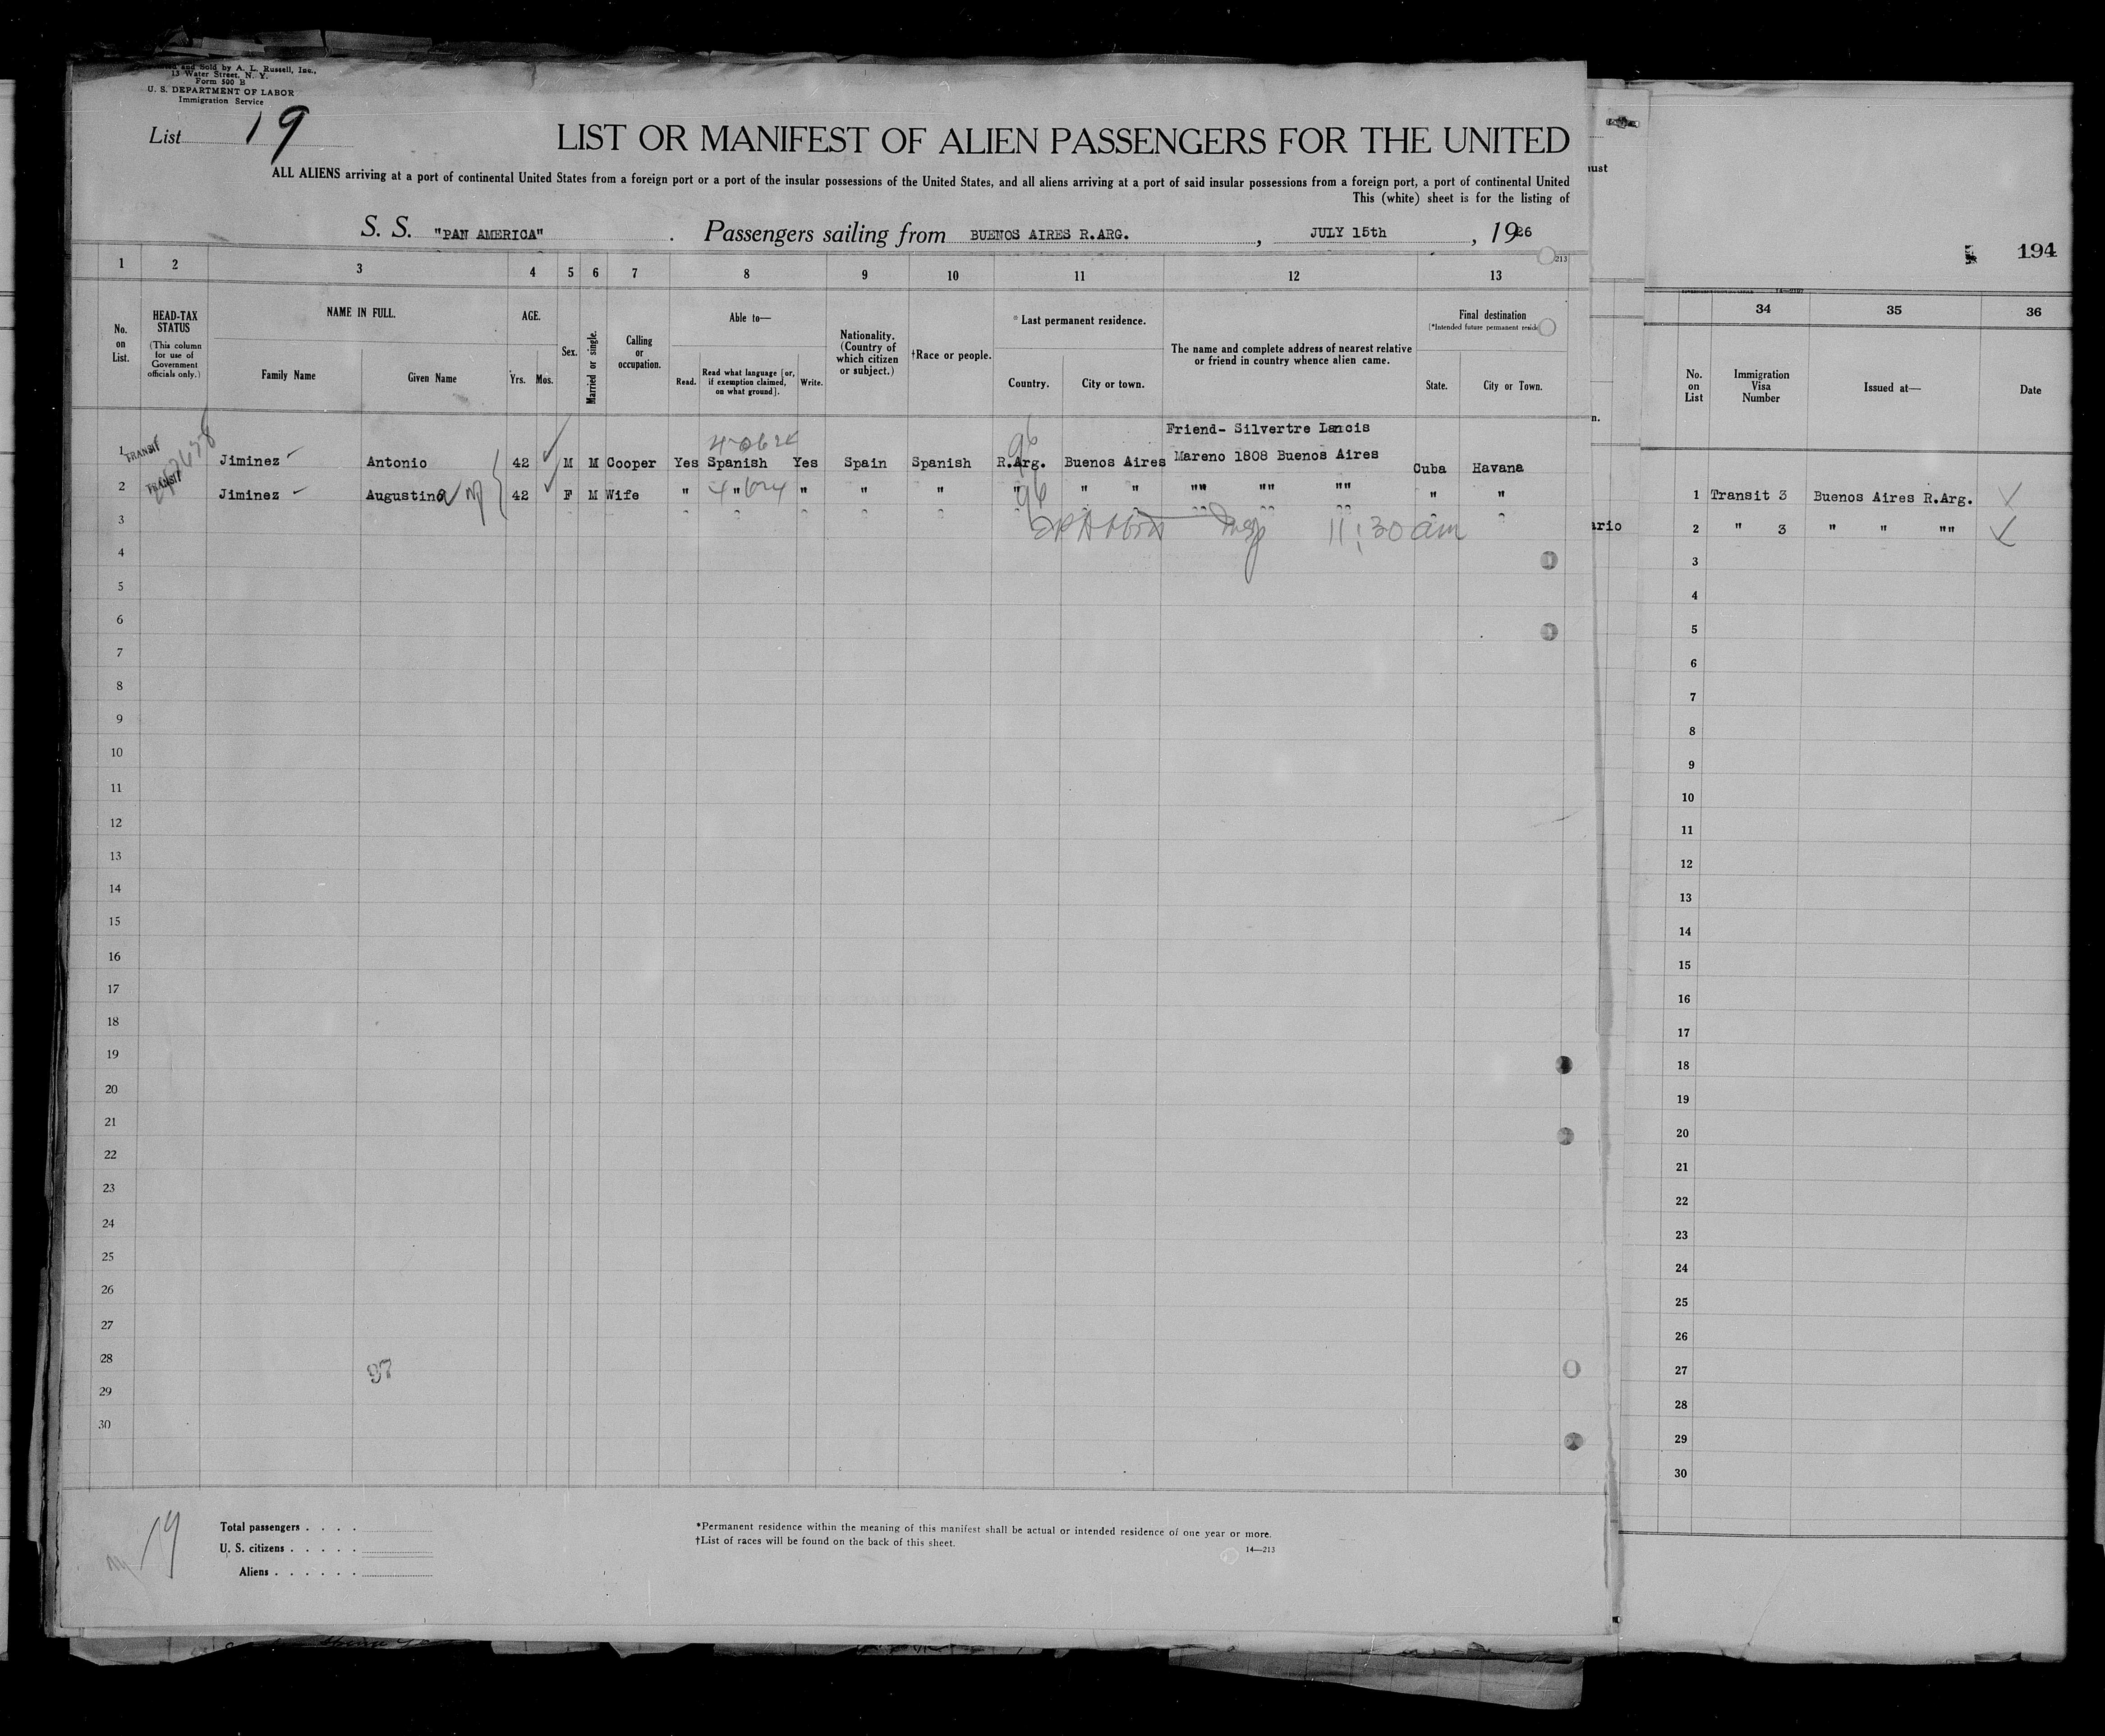 and Sold by A. L. Russell, Inc.,
13 Water Street, N. Y.
Form 500 B
U. S. DEPARTMENT OF LABOR
Immigration Service
List 19
LIST OR MANIFEST OF ALIEN PASSENGERS FOR THE UNITED
ALL ALIENS arriving at a port of continental United States from a foreign port or a port of the insular possessions of the United States, and all aliens arriving at a port of said insular possessions from a foreign port, a port of continental United
This (white) sheet is for the listing of
S. S. "PAN AMERICA" . Passengers sailing from BUENOS AIRES R.ARG. , JULY 15th , 1926
213
194
1 2 3 4 5 6 7 8 9 10 11 12 13
No. on List.
HEAD-TAX STATUS
(This column for use of Government officials only.)
NAME IN FULL.
Family Name Given Name
AGE.
Yrs. Mos.
Sex.
Married or single.
Calling or occupation.
Able to—
Read. Read what language [or, if exemption claimed, on what ground]. Write.
Nationality. (Country of which citizen or subject.)
†Race or people.
* Last permanent residence.
Country. City or town.
The name and complete address of nearest relative or friend in country whence alien came.
Final destination
State. City or Town.
34 35 36
No. on List
Immigration Visa Number
Issued at—
Date
Friend- Silvertre Lancis
1 TRANSIT Jiminez Antonio 42 M M Cooper Yes Spanish Yes Spain Spanish R.Arg. Buenos Aires Mareno 1808 Buenos Aires Cuba Havana
96
2 TRANSIT Jiminez Augustina 42 F M Wife " " " " " " " " "" "" "" " "
96
11:30 am
3
4
5
6
7
8
9
10
11
12
13
14
15
16
17
18
19
20
21
22
23
24
25
26
27
28
29
30
97
1 Transit 3 Buenos Aires R.Arg.
2 " 3 " " ""
3
4
5
6
7
8
9
10
11
12
13
14
15
16
17
18
19
20
21
22
23
24
25
26
27
28
29
30
19
Total passengers . . . .
U. S. citizens . . . . .
Aliens . . . . . .
*Permanent residence within the meaning of this manifest shall be actual or intended residence of one year or more.
†List of races will be found on the back of this sheet.
14—213